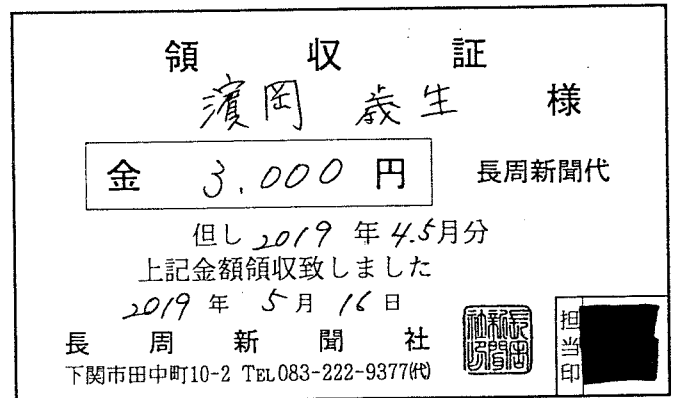 領収証
濱岡 歳生 様
金 3,000 円 長周新聞代
但し 2019 年 4.5月分
上記金額領収致しました
2019 年 5 月 16 日
長周新聞社
下関市田中町10-2 TEL083-222-9377㈹
担当印